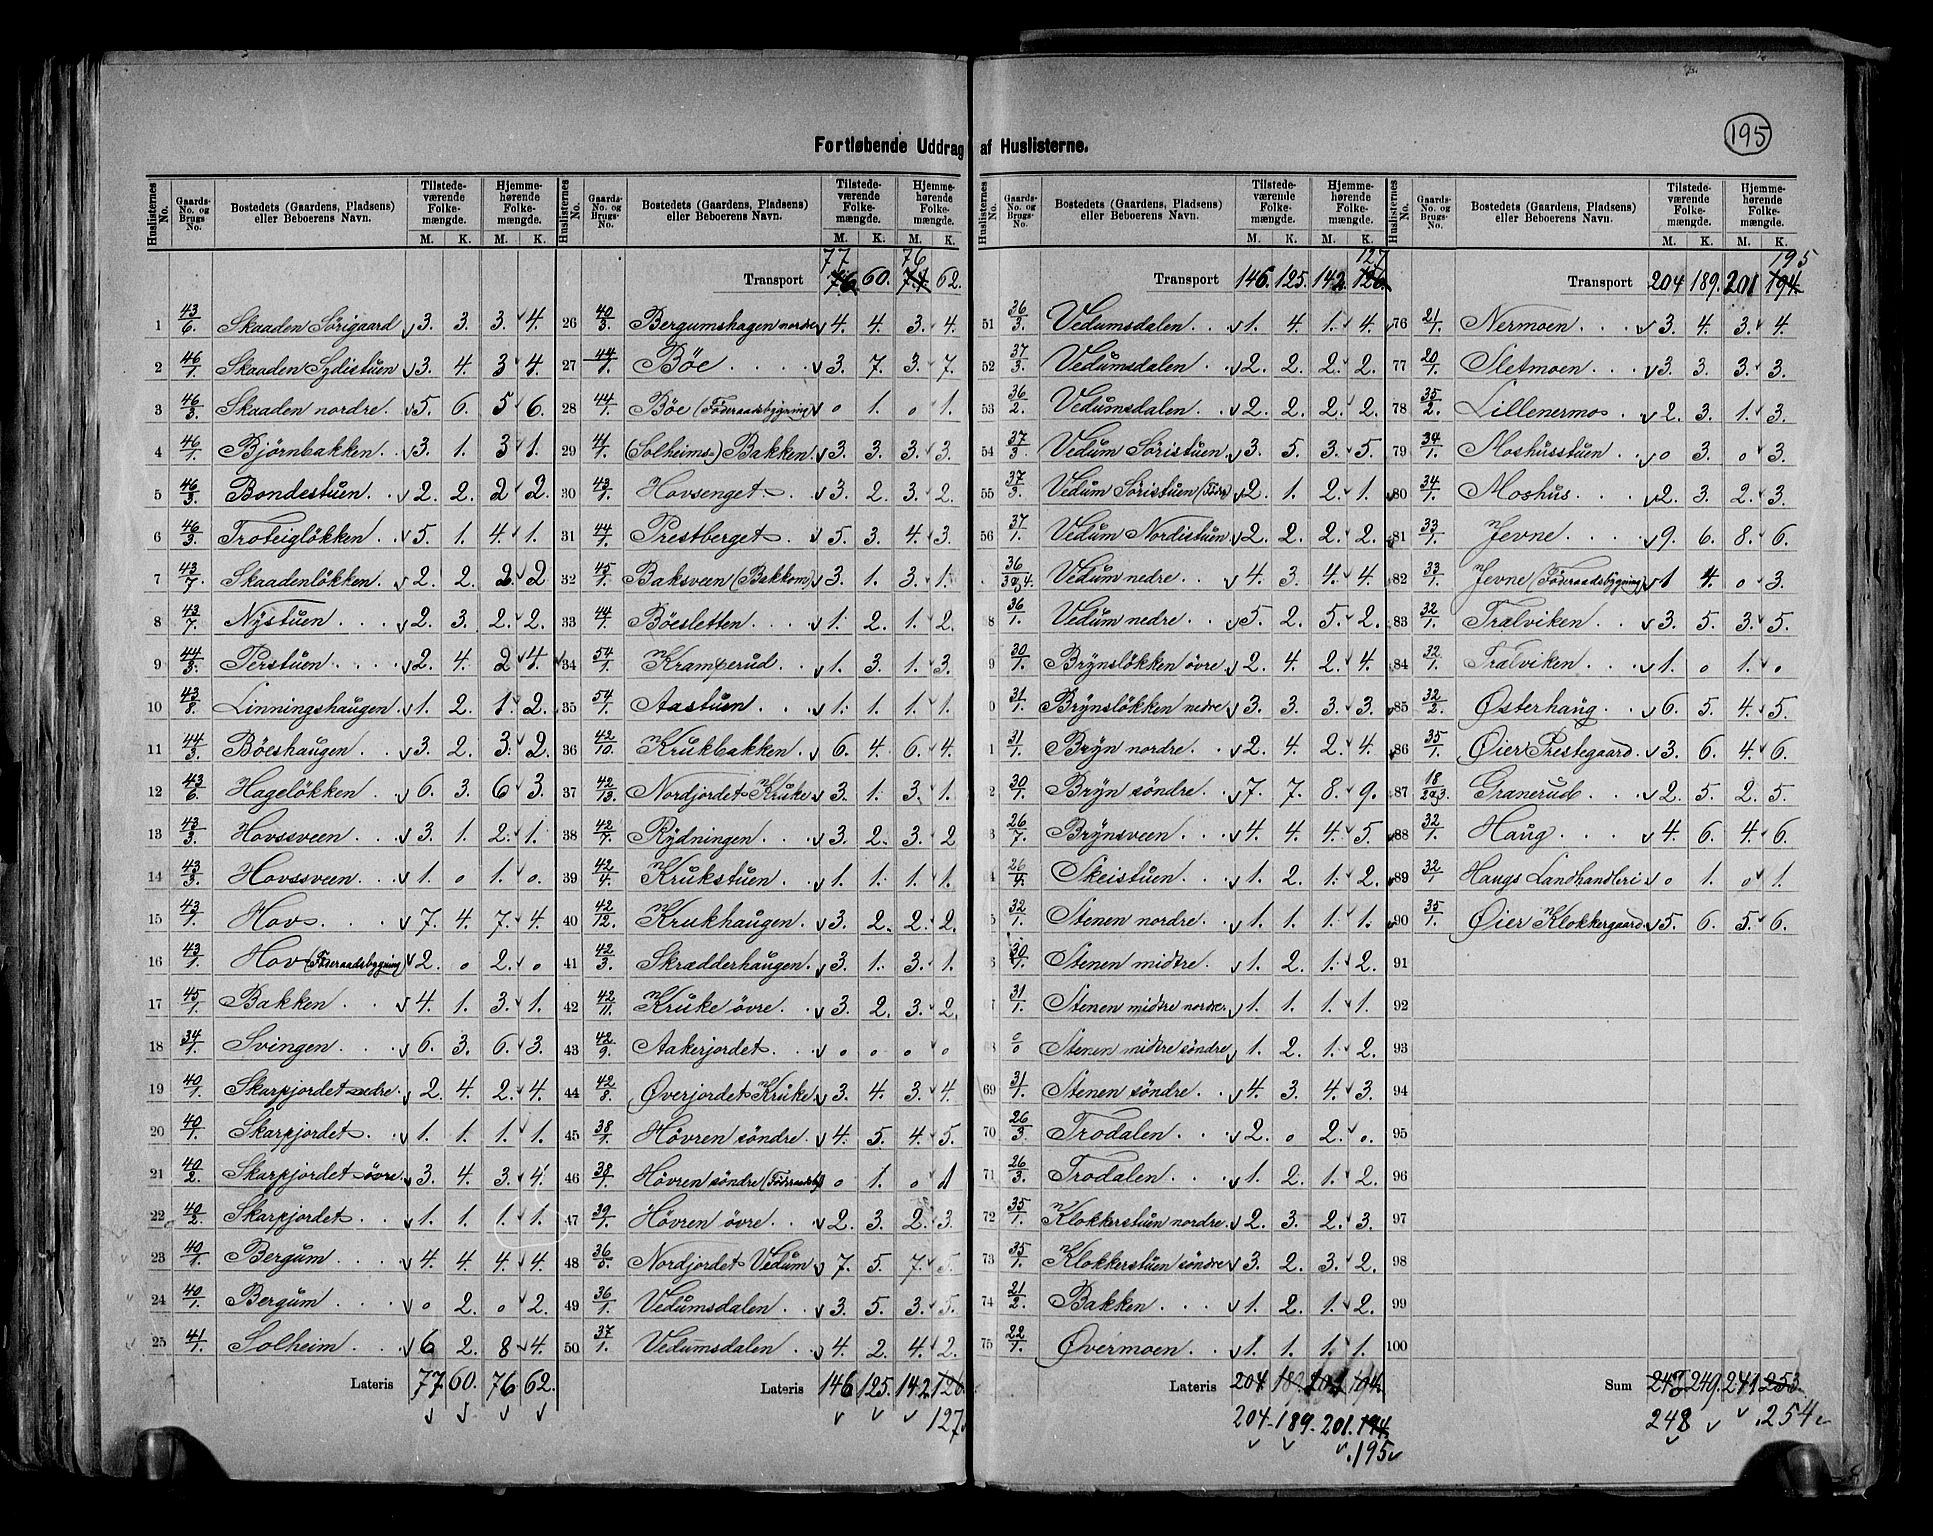 195
Fortløbende Uddrag af Huslisterne.
Huslisternes No. | Gaards-No. og Brugs-No. | Bostedets (Gaardens, Pladsens) eller Beboerens Navn. | Tilstede-værende Folke-mængde. M. K. | Hjemme-hørende Folke-mængde. M. K.
1 43/6. Skaaden Sörigaard 3. 3. 3. 4.
2 46/1. Skaaden Sydistuen 3. 4. 3 4.
3 46/3. Skaaden nordre. 5. 6. 5 6.
4 46/1. Bjørnbakken. 3. 1. 3 1.
5 46/3. Bondestuen. 2. 2. 2 2.
6 46/3. Troteigløkken. 5. 1. 4. 1.
7 43/7. Skaadenløkken. 2. 2. 2. 2
8 43/7. Nÿstuen 2. 3. 2. 2.
9 44/3. Perstuen 2. 4. 2 4.
10 43/8. Linningshaugen 1. 2. 1. 2.
11 44/3. Böeshaugen 3. 2. 3. 2.
12 43/6. Hageløkken 6. 3. 6 3.
13 43/3. Hovssveen. 3. 1. 2. 1.
14 43/3. Hovssveen. 1. 0 1. 0.
15 43/1. Hov. 7. 4. 7. 4.
16 43/1. Hov (Föderaadsbygning) 2. 0 2. 0
17 45/1. Bakken 4. 1. 3. 1.
18 34/1. Svingen 6. 3. 6. 3.
19 40/1. Skarpjordet nedre. 2. 4. 2. 4.
20 40/1. Skarpjordet. 1. 1. 1. 1.
21 40/2. Skarpjordet øvre 3. 4. 3. 4.
22 40/2. Skarpjordet. 1. 1. 1. 1.
23 40/1. Bergum. 4. 4. 4. 4.
24 40/1. Bergum 0 2. 0 2.
25 41/1. Solheim. 6 2. 8 4.
Lateris 77. 60. 76 62.
Transport 77 76. 60. 76 74 62.
26 40/3. Bergumshagen nordre 4. 4. 3. 4.
27 44/1. Böe 3. 7. 3. 7.
28 44/1. Böe (Föderaadsbygning) 0 1. 0 1.
29 41/1. (Solheims-) Bakken. 3. 3. 3. 3.
30 43/1. Hovsenget. 3. 2. 3. 2.
31 44/1. Prestberget. 5. 3. 4. 3.
32 45/1. Baksveen (Bakkom) 3. 1. 3. 1.
33 44/1. Böesletten 1. 2. 1. 2.
34 54/1. Kramperud 1. 3. 1. 3.
35 54/1. Aastuen 1. 1. 1. 1.
36 42/10. Krukbakken. 6. 4. 6. 4.
37 42/13. Nordjordet Kruke 3. 1. 3. 1.
38 42/7. Rÿdningen 3. 2. 3. 2
39 42/4. Krukstuen 1. 1. 1. 1.
40 42/12. Krukhaugen 3. 2. 2. 2.
41 42/3. Skrædderhaugen 3. 1. 3. 1.
42 42/11. Kruke övre. 3. 2. 3. 2.
43 42/9. Aakerjordet. 0 0 0 0
44 42/8. Øverjordet Kruke 3. 4. 3. 4.
45 38/1. Hövren söndre. 4. 5. 4. 5.
46 38/1. Hövren söndre (Föderaadsb) 0 1. 0 1
47 39/1. Hövren övre. 2. 3. 2. 3.
48 36/5. Nordjordet Vedum 7. 5. 7. 5.
49 36/1. Vedumsdalen 3. 5. 3. 5.
50 37/1. Vedumsdalen 4. 2. 4. 2.
Lateris 146 125. 142. 126.
127.
Transport 146. 125. 142. 127 126.
51 36/3. Vedumsdalen. 1. 4. 1. 4.
52 37/3. Vedumsdalen 2. 2. 2. 2.
53 36/2. Vedumsdalen. 2. 2. 2. 2.
54 37/3. Vedum Söristuen 3. 5. 3. 5.
55 37/3. Vedum Söristuen (Föd.) 2. 1. 2. 1.
56 37/1. Vedum Nordistuen 2. 2. 2. 2.
36/3 og 4. Vedum nedre 4. 3. 4. 4.
8 36/1. Vedum nedre 5. 2. 5. 2.
9 30/1. Brÿnsløkken övre 2. 4. 2. 4.
0 31/1. Brÿnsløkken nedre 3. 3. 3. 3.
1 31/1. Brÿn nordre. 2. 4. 2. 4.
2 30/1. Brÿn söndre. 7. 7. 8. 9.
3 26/7. Brÿnsveen. 4. 4. 4. 5.
4 26/4. Skeistuen. 1. 2. 1. 2.
5 32/1. Stenen nordre. 1. 1. 1. 1.
6 30/1. Stenen midtre. 1. 2. 1. 2.
7 31/1. Stenen midtre nordre. 1. 1. 1. 1.
8 0/0 Stenen midtre söndre 1. 2. 1. 2.
69 31/1. Stenen söndre. 4. 3. 4. 3.
70 26/3. Trodalen. 2. 0 2. 0.
71 26/3. Trodalen. 1. 2. 1. 2.
72 35/1. Klokkerstuen nordre 2. 3. 2. 3.
73 35/1. Klokkerstuen söndre 3. 2. 3. 2.
74 21/2. Bakken 1. 2. 1. 2.
75 22/1. Øvermoen 1. 1. 1. 1.
Lateris 204 189. 201 194.
204. 189. 201. 194.
195
Transport 204 189. 201 195 194.
76 21/1. Nermoen 3. 4. 3. 4.
77 20/1. Sletmoen 3. 3. 3. 3.
78 35/2. Lillenermo 2. 3. 1. 3.
79 34/1. Moshusstuen 0 3. 0 3.
80 34/1. Moshus. 2. 3. 2. 3.
81 33/1. Jevne. 9. 6. 8. 6.
82 33/1. Jevne (Föderaadsbygning) 1 4. 0 3.
83 32/1. Trælviken 3. 5. 3. 5.
84 32/1. Trælviken 1. 0 1. 0
85 32/2. Østerhaug. 6. 5. 4. 5.
86 35/1. Øier Prestegaard. 3. 6. 4. 6.
87 18/2 og 3. Granerud. 2. 5. 2. 5.
88 32/1. Haug. 4. 6. 4. 6.
89 32/1 Haugs Landhandleri 0 1. 0 1.
90 35/1. Øier Klokkergaard 5. 6. 5. 6.
91
92
93
94
95
96
97
98
99
100
Sum 247 249. 241 253
248 254